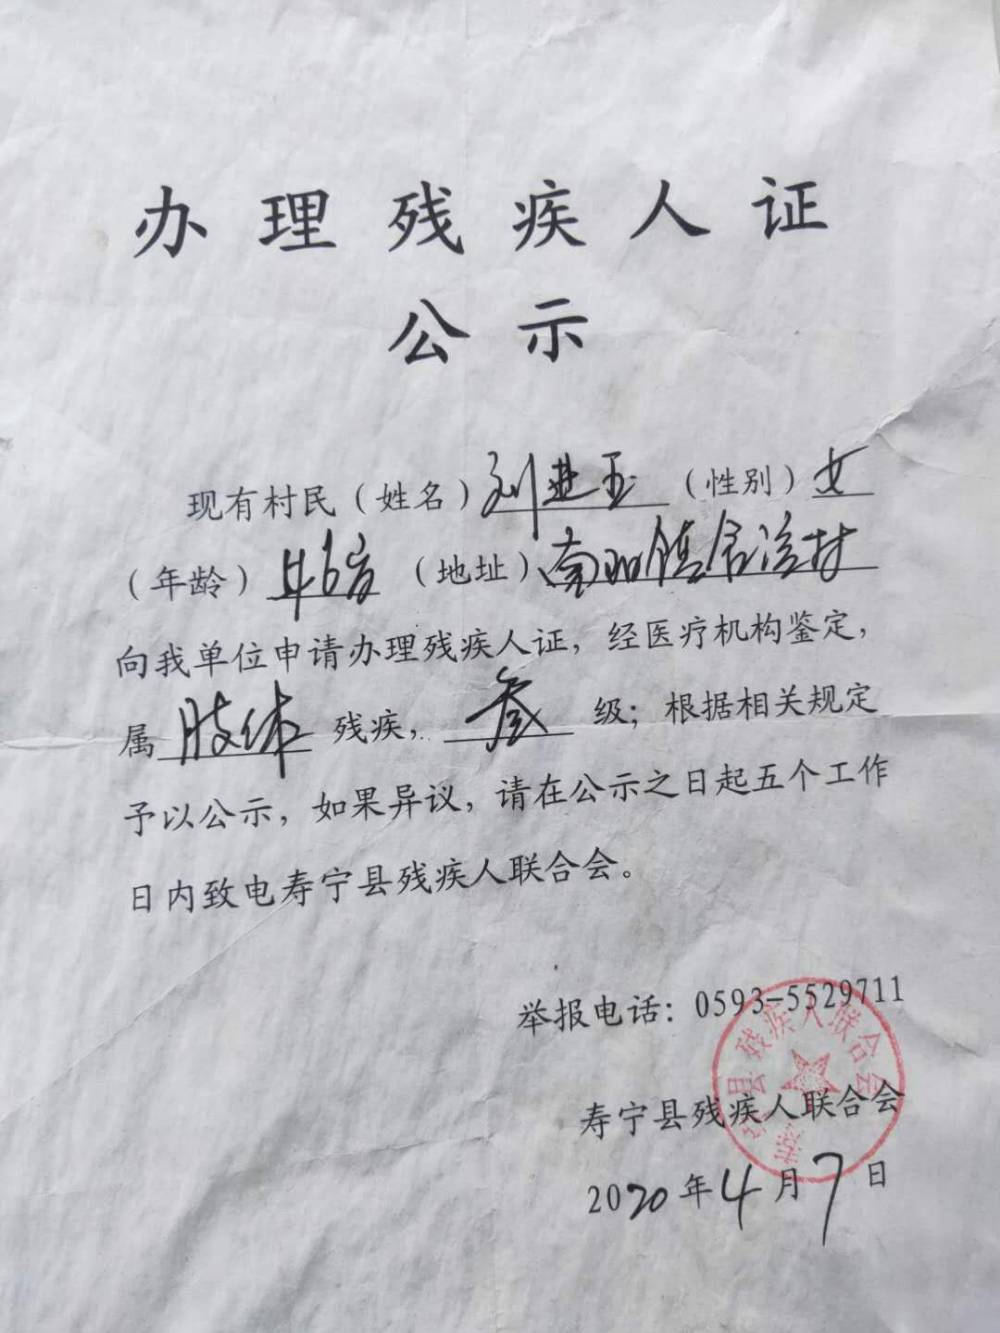 办理残疾人证
公示
现有村民（姓名）刘进玉（性别）女
（年龄）46岁（地址）南阳镇含洋村
向我单位申请办理残疾人证，经医疗机构鉴定，
属肢体残疾，叁级；根据相关规定
予以公示，如果异议，请在公示之日起五个工作
日内致电寿宁县残疾人联合会。
举报电话：0593-5529711
寿宁县残疾人联合会
寿宁县残疾人联合会
2020年4月7日